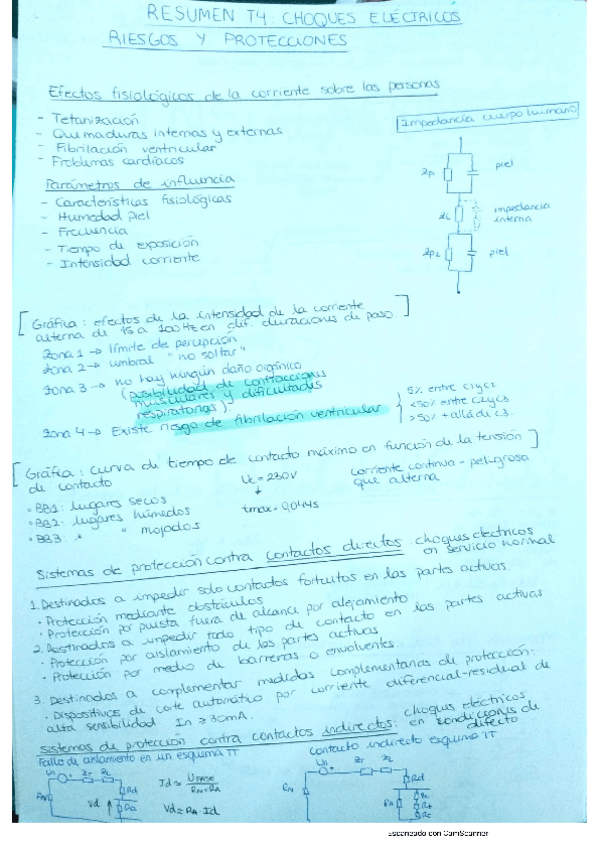 RESUMEN T4: CHOQUES ELÉCTRICOS
RIESGOS Y PROTECCIONES
Efectos fisiológicos de la corriente sobre las personas
- Tetanización
- Quemaduras internas y externas
- Fibrilación ventricular
- Problemas cardíacos
Impedancia cuerpo humano
Zp1
piel
Zi
impedancia interna
Zp2
piel
Parámetros de influencia
- Características fisiológicas
- Humedad piel
- Frecuencia
- Tiempo de exposición
- Intensidad corriente
[Gráfica: efectos de la intensidad de la corriente
alterna de 15 a 100Hz en dif. duraciones de paso.]
Zona 1 → límite de percepción
Zona 2 → umbral "no soltar"
Zona 3 → no hay ningún daño orgánico
(posibilidad de contracciones
musculares y dificultades
respiratorias).
Zona 4 → Existe riesgo de fibrilación ventricular
5% entre c1yc2
<50% entre c2yc3
>50% + allá de c3.
[Gráfica: curva de tiempo de contacto máximo en función de la tensión]
de contacto
Uc = 230V
↓
tmax = 0,044s
corriente continua - peligrosa
que alterna
• BB1: lugares secos
• BB2: lugares húmedos
• BB3: " " mojados
Sistemas de protección contra contactos directos: choques eléctricos
en servicio normal
1. Destinados a impedir solo contactos fortuitos en las partes activas.
• Protección mediante obstáculos
• Protección por puesta fuera de alcance por alejamiento
2. Destinados a impedir todo tipo de contacto en las partes activas
• Protección por aislamiento de las partes activas
• Protección por medio de barreras o envolventes.
3. Destinados a complementar medidas complementarias de protección:
• Dispositivos de corte automático por corriente diferencial-residual de
alta sensibilidad In ≥ 30mA.
Sistemas de protección contra contactos indirectos: choques eléctricos
en condiciones de
defecto
Fallo de aislamiento en un esquema TT
contacto indirecto esquema TT
Un
Zf
ZL
RN
Rd
Vd
RA
Id ≈ UFASE / RN+RA
Vd ≈ RA · Id
Un
Zf
ZL
RN
Rd
RA